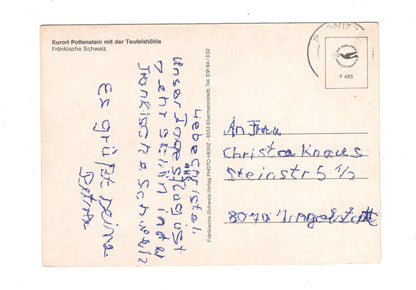 Kurort Pottenstein mit der Teufelshöhle
Fränkische Schweiz
Liebe Christa!
Unser Tagesflug ist
sehr schön in der
Fränkische Schweiz
Es grüßt Deine
Fränkische-Schweiz-Verlag PHOTO HEINZ · 8553 Ebermannstadt, Tel. 0 91 94 / 3 02
F 485
An Frau
Christa Knaus
Steinstr 5 1/2
8070 Ingolstadt